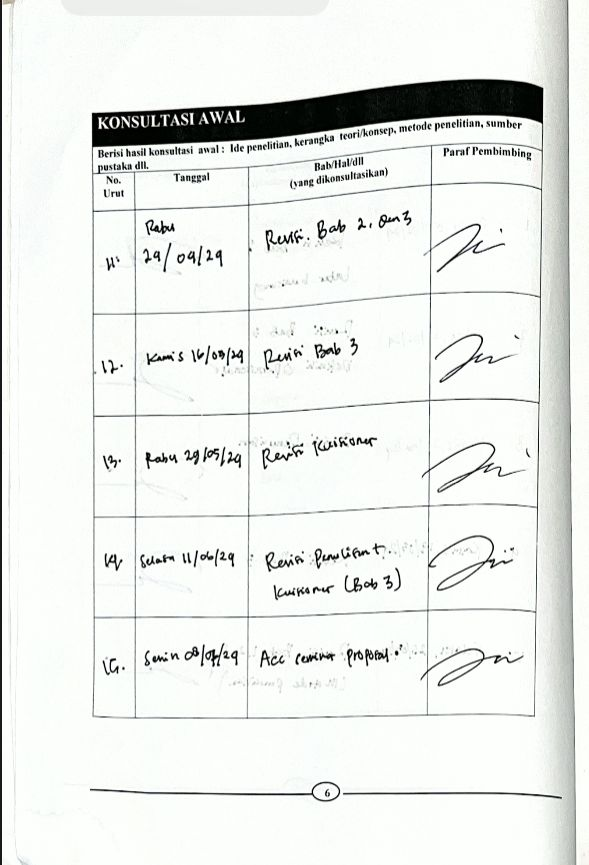 KONSULTASI AWAL
Berisi hasil konsultasi awal : Ide penelitian, kerangka teori/konsep, metode penelitian, sumber
pustaka dll.
No.
Urut
Tanggal
Bab/Hal/dll
(yang dikonsultasikan)
Paraf Pembimbing
11.
Rabu
24/04/24
Revisi. Bab 2, dan 3
12.
Kamis 16/05/24
Revisi Bab 3
13.
Rabu 29/05/24
Revisi Kuisioner
14.
Selasa 11/06/24
Revisi Penulisan +
Kuisioner (Bab 3)
15.
Senin 08/07/24
Acc seminar proposal.
6